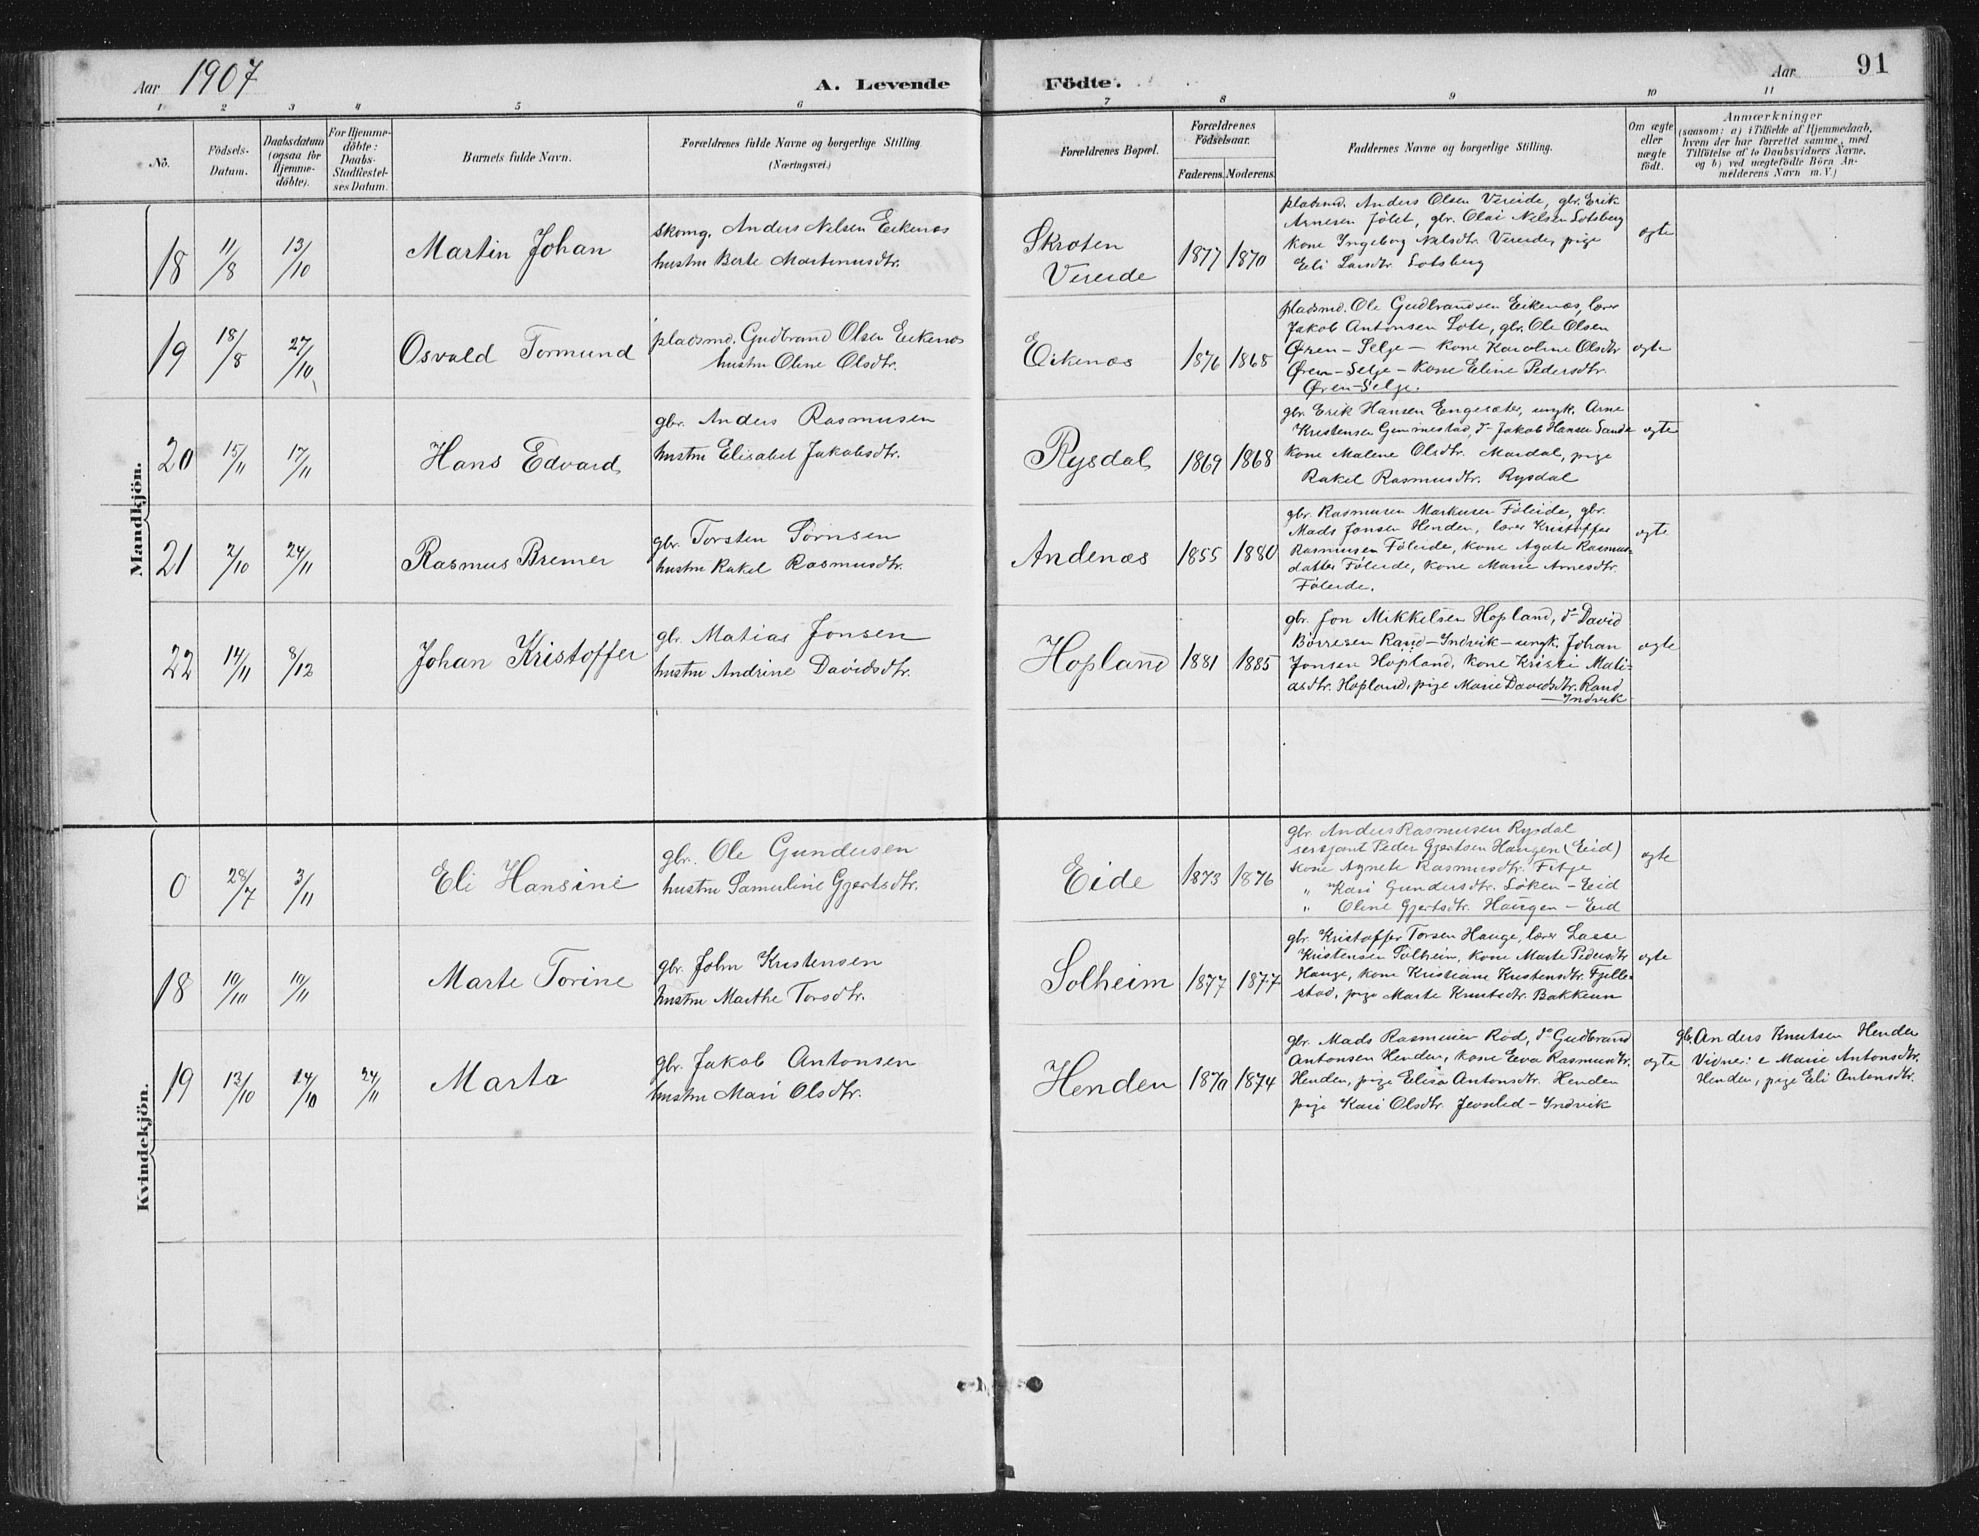 Aar 1907
A. Levende Födte.
Aar
91
1 2 3 4 5 6 7 8 9 10 11
No.
Födsels-Datum.
Daabsdatum (ogsaa for Hjemme-döbte).
For Hjemme-döbte: Daabs-Stadfæstel-ses Datum.
Barnets fulde Navn.
Forældrenes fulde Navne og borgerlige Stilling (Næringsvei.)
Forældrenes Bopæl.
Forældrenes Födselsaar.
Faderens. Moderens.
Faddernes Navne og borgerlige Stilling.
Om ægte eller uægte födt.
Anmærkninger
(saasom: a) i Tilfælde af Hjemmedaab, hvem der har forrettet samme, med Tilföielse af to Daabsvidners Navne. og b) ved uegtefödte Börn An-melderens Navn m. V.)
Mandkjön.
18 11/8 13/10 Martin Johan
Skomg. Anders Nelsen Eikenæs
hustru Berte Martinusdtr.
Skroten
Vereide
1877 1870
pladsmd. Anders Olsen Vereide, gbr. Erik
Arnesen Jölet, gbr. Olai Nelsen Lotsberg
kone Ingeborg Nelsdtr. Vereide, pige
Eli Larsdtr. Lotsberg
ægte
19 18/8 27/10 Osvald Tormund
pladsmd. Gudbrand Olsen Eikenæs
hustru Oline Olsdtr.
Eikenæs
1876 1868
pladsmd. Ole Gudbrandsen Eikenæs, lærer
Jakob Antonsen Lote, gbr. Ole Olsen
Øren-Selje - kone Karoline Olsdtr
Øren-Selje - kone Eline Pedersdtr.
Øren-Selje.
ægte
20 15/11 17/11 Hans Edvard
gbr. Anders Rasmusen
hustru Elisabet Jakobsdtr.
Rysdal
1869 1868
gbr. Erik Hansen Engesæter, ungk. Arne
Kristensen Gimmestad, do Jakob Hansen Sande
kone Malene Olsdtr. Mardal, pige
Rakel Rasmusdtr. Rysdal
ægte
21 2/10 24/11 Rasmus Bremer
gbr. Torsten Sörnsen
hustru Rakel Rasmusdtr.
Andenæs
1855 1880
gbr. Rasmusen Markusen Föleide, gbr.
Mads Jonsen Henden, lærer Kristoffer
Rasmusen Föleide, kone Agate Rasmus-
datter Föleide, kone Marie Arnesdtr.
Föleide.
ægte
22 14/11 8/12 Johan Kristoffer
gbr. Matias Jonsen
hustru Andrine Davidsdtr.
Hopland
1881 1885
gbr. Jon Mikkelsen Hopland, do David
Börresen Rand-Indvik-ungk. Johan
Jonsen Hopland, kone Kristi Mati-
asdtr. Hopland, pige Marie Davidsdtr. Rand
-Indvik
ægte
Kvindekjön.
0 28/7 3/11 Eli Hansine
gbr. Ole Gundersen
hustru Samueline Gjertsdtr.
Eide
1873 1876
gbr. Anders Rasmusen Rysdal
sersjant Peder Gjertsen Haugen (Eid)
kone Agnete Rasmusdtr. Fitje
" Kari Gundersdtr. Löken-Eid
" Oline Gjertsdtr. Haugen-Eid
ægte
18 10/10 10/11 Marte Torine
gbr. John Kristensen
hustru Marthe Torsdtr.
Solheim
1877 1877
gbr. Kristoffer Torsen Hauge, lærer Lasse
Kristensen Solheim, kone Marte Pedersdtr
Hauge, kone Kristiane Kristensdtr. Fjelle-
stad, pige Marte Knutsdtr. Bakkeun
ægte
19 12/10 14/10 24/11 Marta
gbr. Jakob Antonsen
hustru Mari Olsdtr.
Henden
1870 1874
gbr. Mads Rasmusen Röd, do Gudbrand
Antonsen Henden, kone Eva Rasmusdtr.
Henden, pige Elisa Antonsdtr. Henden
pige Kari Olsdtr. -Indvik
ægte
gbr. Anders Knutsen Henden
Vidner: Marie Antonsdtr.
Henden, pige Eli Antonsdtr.